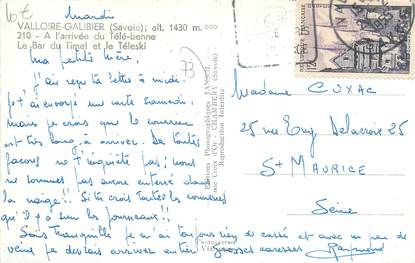 Mardi
VALLOIRE-GALIBIER (Savoie); alt. 1430 m.
210 - A l'arrivée du Télé-benne
Le Bar du Timel et le Téleski
Ma petite Mère,
J'ai reçu ta lettre à midi.
Je t'ai envoyé une carte samedi,
mais je crois que le courrier
est très long à arriver. De toutes
façons ne t'inquiète pas; nous
ne sommes pas encore enterré dans
la neige!! Si tu crois toutes les conneries
qu'il y a sur les journeaux!!
Sois tranquille je n'ai toujours rien de cassé et avec un peu de
veine je devrais arriver entier grosses caresses Raymond
73
Editions Photographiques JANSOL
rue Croix d'Or - CHAMBERY (Savoie)
Reproduction Interdite
Madame CUXAC
25 rue Eug Delacroix 25
St MAURICE
Seine
12F